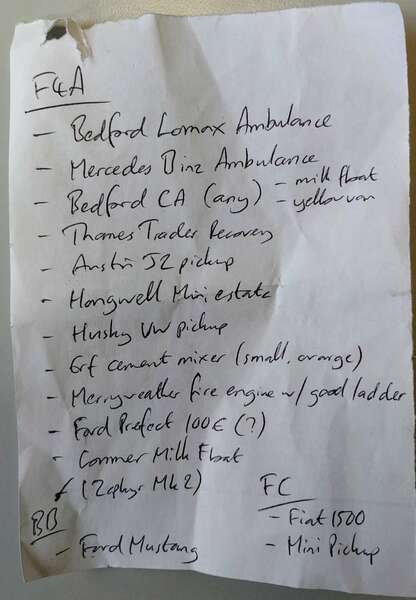 F4A
- Bedford Lomax Ambulance
- Mercedes Binz Ambulance
- Bedford CA (any) - milk float
- yellow van
- Thames Trader Recovery
- Austin J2 pickup
- Hongwell Mini estate
- Husky VW pickup
- Erf cement mixer (small, orange)
- Merryweather fire engine w/ good ladder
- Ford Prefect 100E (?)
- Commer Milk Float
(Zephyr Mk2)
BB
- Ford Mustang
FC
- Fiat 1500
- Mini Pickup